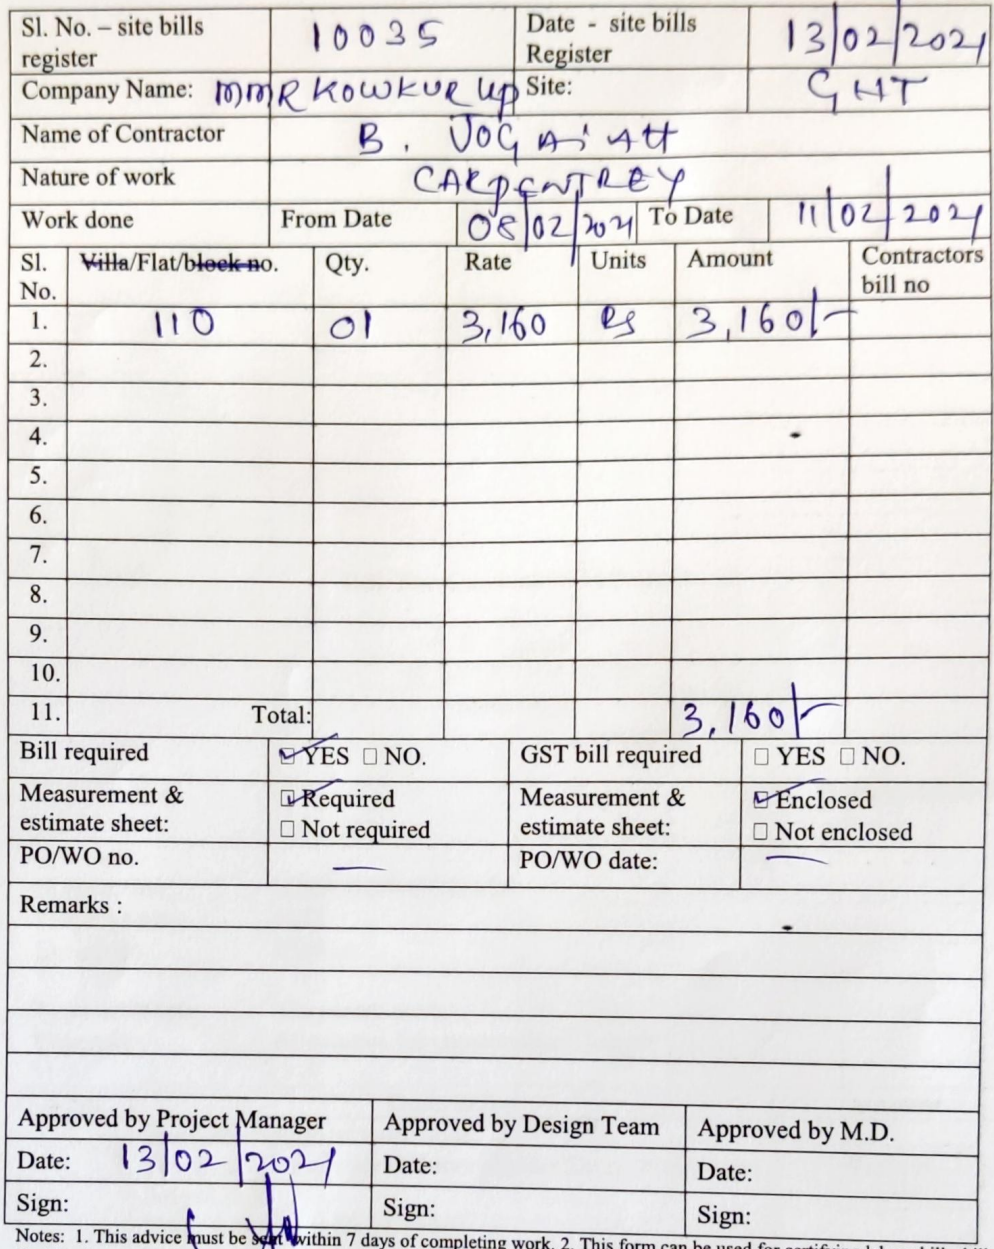 Sl. No. – site bills register 10035 Date - site bills Register 13/02/2021
Company Name: MMR KOWKUR LLP Site: GHT
Name of Contractor B. JOGAIAH
Nature of work CARPENTREY
Work done From Date 08/02/2021 To Date 11/02/2021
Sl. No. Villa/Flat/block no. Qty. Rate Units Amount Contractors bill no
1. 110 01 3,160 Rs 3,160/-
2.
3.
4.
5.
6.
7.
8.
9.
10.
11. Total: 3,160/-
Bill required ☑ YES ☐ NO. GST bill required ☐ YES ☐ NO.
Measurement & estimate sheet: ☑ Required ☐ Not required Measurement & estimate sheet: ☑ Enclosed ☐ Not enclosed
PO/WO no. — PO/WO date: —
Remarks :
Approved by Project Manager Approved by Design Team Approved by M.D.
Date: 13/02/2021 Date: Date:
Sign: Sign: Sign:
Notes: 1. This advice must be sent within 7 days of completing work. 2. This form can be used for